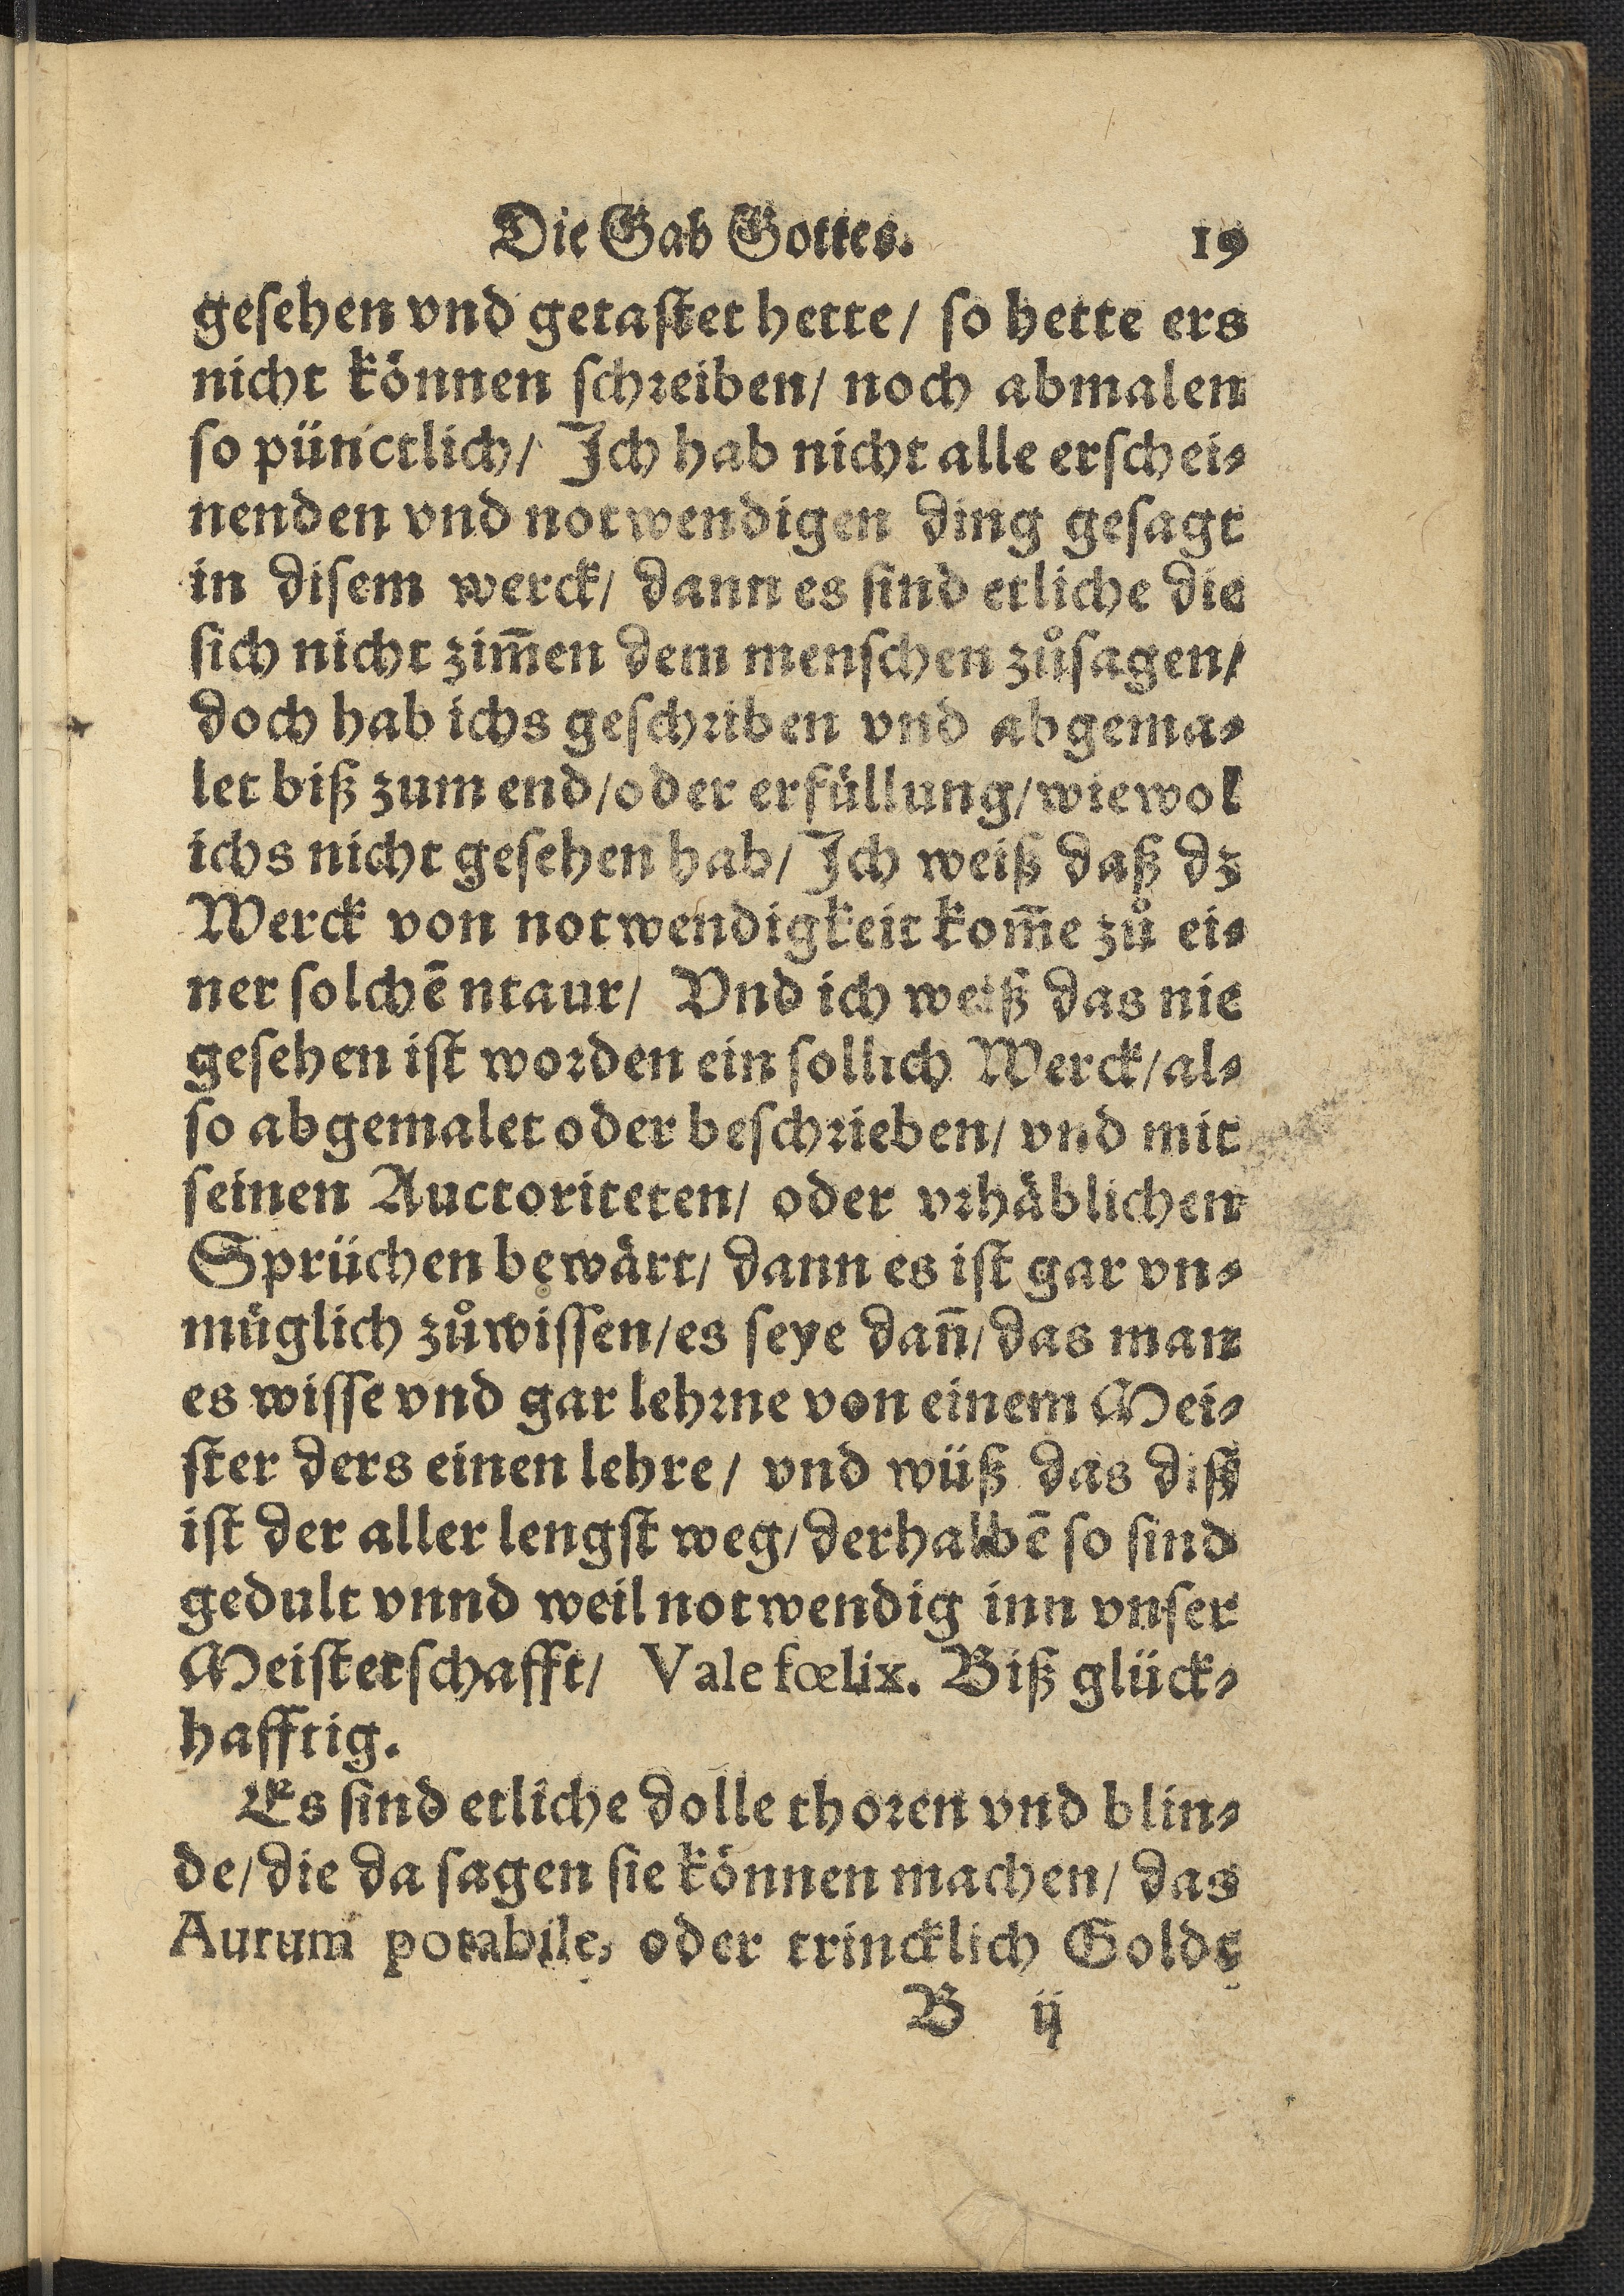 Die Gab Gottes. 19
geſehen vnd getaſtet hette/ ſo hette ers
nicht können ſchꝛeiben/ noch abmalen
ſo pünctlich/ Ich hab nicht alle erſchei⸗
nenden vnd notwendigen ding geſagt
in diſem werck/ dann es ſind etliche die
ſich nicht zim̄en dem menſchen zůſagen/
doch hab ichs geſchꝛiben vnd abgema⸗
let biß zum end/oder erfüllung/wiewol
ichs nicht geſehen hab/ Ich weiß daß dz
Werck von notwendigkeit kom̄e zů ei⸗
ner ſolchē ntaur/ Vnd ich weiß das nie
geſehen iſt woꝛden ein ſollich Werck/al⸗
ſo abgemalet oder beſchꝛieben/ vnd mit
ſeinen Auctoriteten/ oder vꝛhäblichen
Sprüchen bewärt/ dann es iſt gar vn⸗
müglich zůwiſſen/es ſeye dan̄/das man
es wiſſe vnd gar lehꝛne von einem Mei⸗
ſter ders einen lehre/ vnd wüß das diß
iſt der aller lengſt weg/derhalbē ſo ſind
gedult vnnd weil notwendig inn vnſer
Meiſterſchafft/ Vale fœlix. Biß glück⸗
hafftig.
Es ſind etliche dolle thoꝛen vnd blin⸗
de/die da ſagen ſie können machen/ das
Aurum potabile, oder trincklich Goldt
B ij